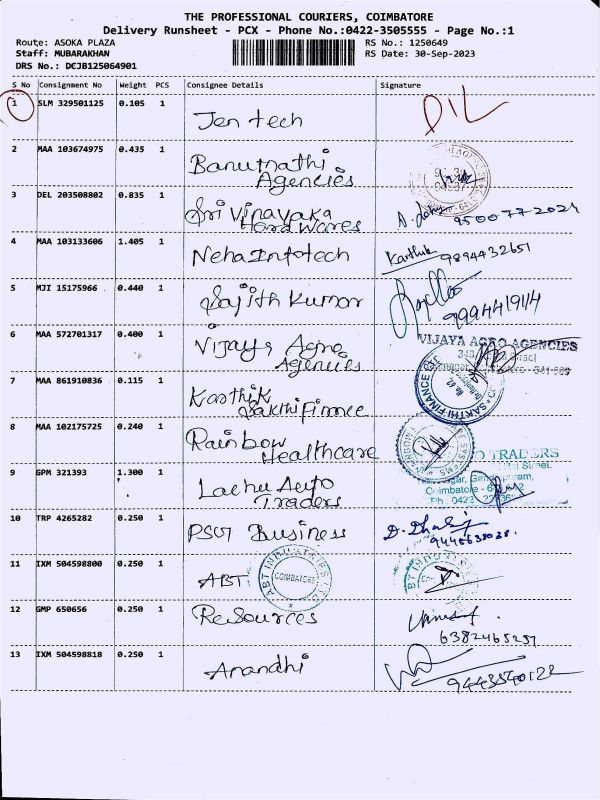 THE PROFESSIONAL COURIERS, COIMBATORE
Delivery Runsheet - PCX - Phone No.:0422-3505555 - Page No.:1
Route: ASOKA PLAZA RS No.: 1250649
Staff: MUBARAKHAN RS Date: 30-Sep-2023
DRS No.: DCJB125064901
S No Consignment No Weight PCS Consignee Details Signature
1 SLM 329501125 0.105 1 Jen tech DIL
2 MAA 103674975 0.435 1 Banumathi
Agencies
3 DEL 203508802 0.835 1 Sri Vinayaka
Hard Wares 95007 7 2024
4 MAA 103133606 1.405 1 Neha Infotech Karthik 9894432651
5 MJI 15175966 0.440 1 Sajith Kumar
9994419114
6 MAA 572701317 0.400 1 Vijaya Agro
Agencies
VIJAYA AGRO AGENCIES
7 MAA 861910836 0.115 1 Karthik
Sakthi Finance
SAKTHI FINANCE
8 MAA 102175725 0.240 1 Rainbow
Healthcare
9 GPM 321393 1.300 1 Lachu Auto
Traders
TRADERS
Street,
Coimbatore
10 TRP 4265282 0.250 1 PSG Business
11 IXM 504598800 0.250 1 ABT
ABT INDUSTRIES LTD
COIMBATORE
12 GMP 650656 0.250 1 Resources
6382465257
13 IXM 504598818 0.250 1 Anandhi
9443540122